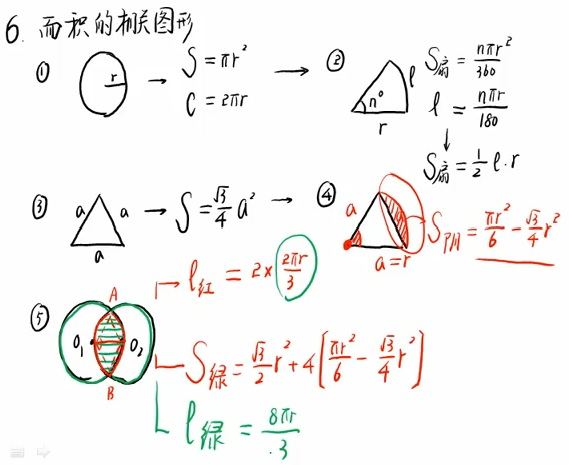 6. 面积的相关图形
① r → S = πr²
C = 2πr
→ ② n° l r
S扇 = nπr²/360
l = nπr/180
↓
S扇 = 1/2 l·r
③ a a a → S = √3/4 a² →
④ a a=r
S阴 = πr²/6 - √3/4 r²
⑤ A O₁ O₂ B
l红 = 2× 2πr/3
S绿 = √3/2 r² + 4[πr²/6 - √3/4 r²]
l绿 = 8πr/3